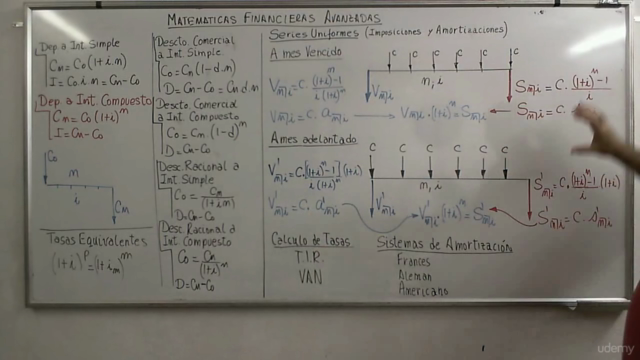 MATEMATICAS FINANCIERAS AVANZADAS
Dep. a Int Simple
Cn = Co(1+i.n)
I = Co.i.n = Cn-Co
Dep. a Int. Compuesto
Cn = Co(1+i)^n
I = Cn-Co
Co
n
i
Cn
Tasas Equivalentes
(1+i)^p = (1+i_m)^m
Descto. Comercial
a Int. Simple
Co = Cn(1-d.n)
D = Cn-Co = Cn.d.n
Descto Comercial
a Int. Compuesto
Co = Cn.(1-d)^n
D = Cn-Co
Desc. Racional a
Int. Simple
Co = Cn/(1+i.n)
D = Cn-Co
Desc. Racional a
Int. Compuesto
Co = Cn/(1+i)^n
D = Cn-Co
Series Uniformes (Imposiciones y Amortizaciones)
A mes Vencido
c c c c c c
Vn̅|i = C. (1+i)^n-1 / i(1+i)^n
n, i
Vn̅|i
Sn̅|i = C. (1+i)^n-1 / i
Vn̅|i = C. an̅|i
Vn̅|i.(1+i)^n = Sn̅|i
Sn̅|i = C.
A mes adelantado
c c c c c c
V'n̅|i = C.[(1+i)^n-1 / i(1+i)^n](1+i)
n, i
V'n̅|i
S'n̅|i = C. (1+i)^n-1 / i (1+i)
V'n̅|i = C. a'n̅|i
V'n̅|i.(1+i)^n = S'n̅|i
S'n̅|i = C. s'n̅|i
Calculo de Tasas
T.I.R.
VAN
Sistemas de Amortización
Frances
Aleman
Americano
udemy